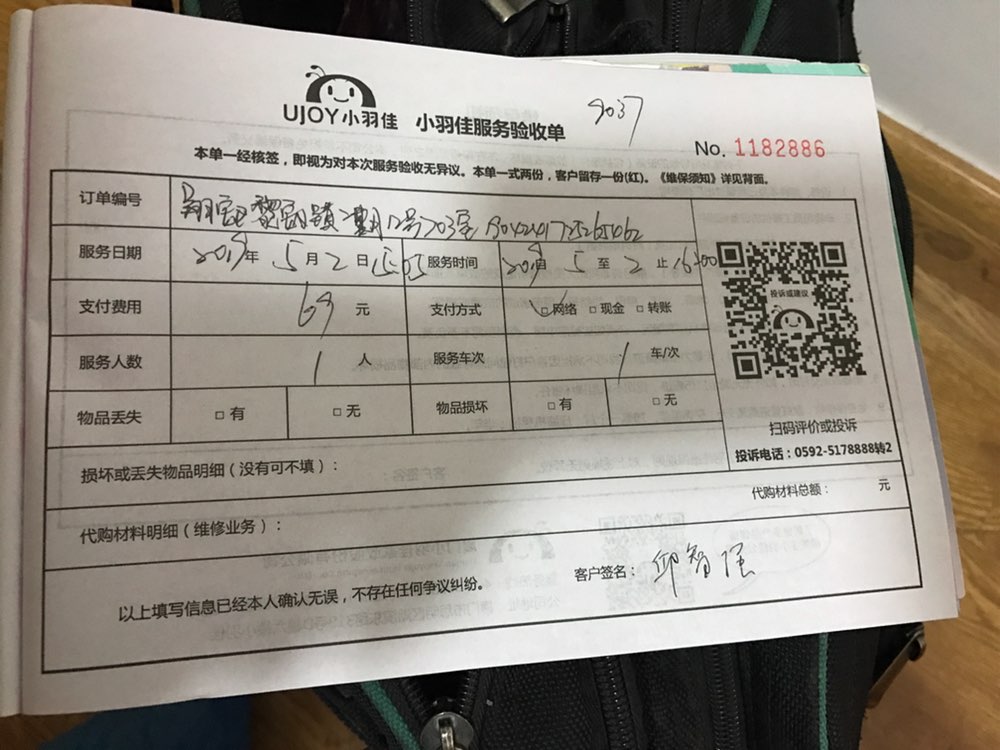 UJOY小羽佳 小羽佳服务验收单
9037
No. 1182886
本单一经核签，即视为对本次服务验收无异议。本单一式两份，客户留存一份(红)。《维保须知》详见背面。
订单编号 12号703室
服务日期 2019年 5月2日 15:05 服务时间 2019自 5至2止 16:00
支付费用 69 元 支付方式 ✓□网络 □现金 □转账
投诉或建议
服务人数 1 人 服务车次 1 车/次
物品丢失 □有 □无 物品损坏 □有 □无
扫码评价或投诉
投诉电话：0592-5178888转2
损坏或丢失物品明细（没有可不填）：
代购材料总额： 元
代购材料明细（维修业务）：
客户签名：邱智强
以上填写信息已经本人确认无误，不存在任何争议纠纷。